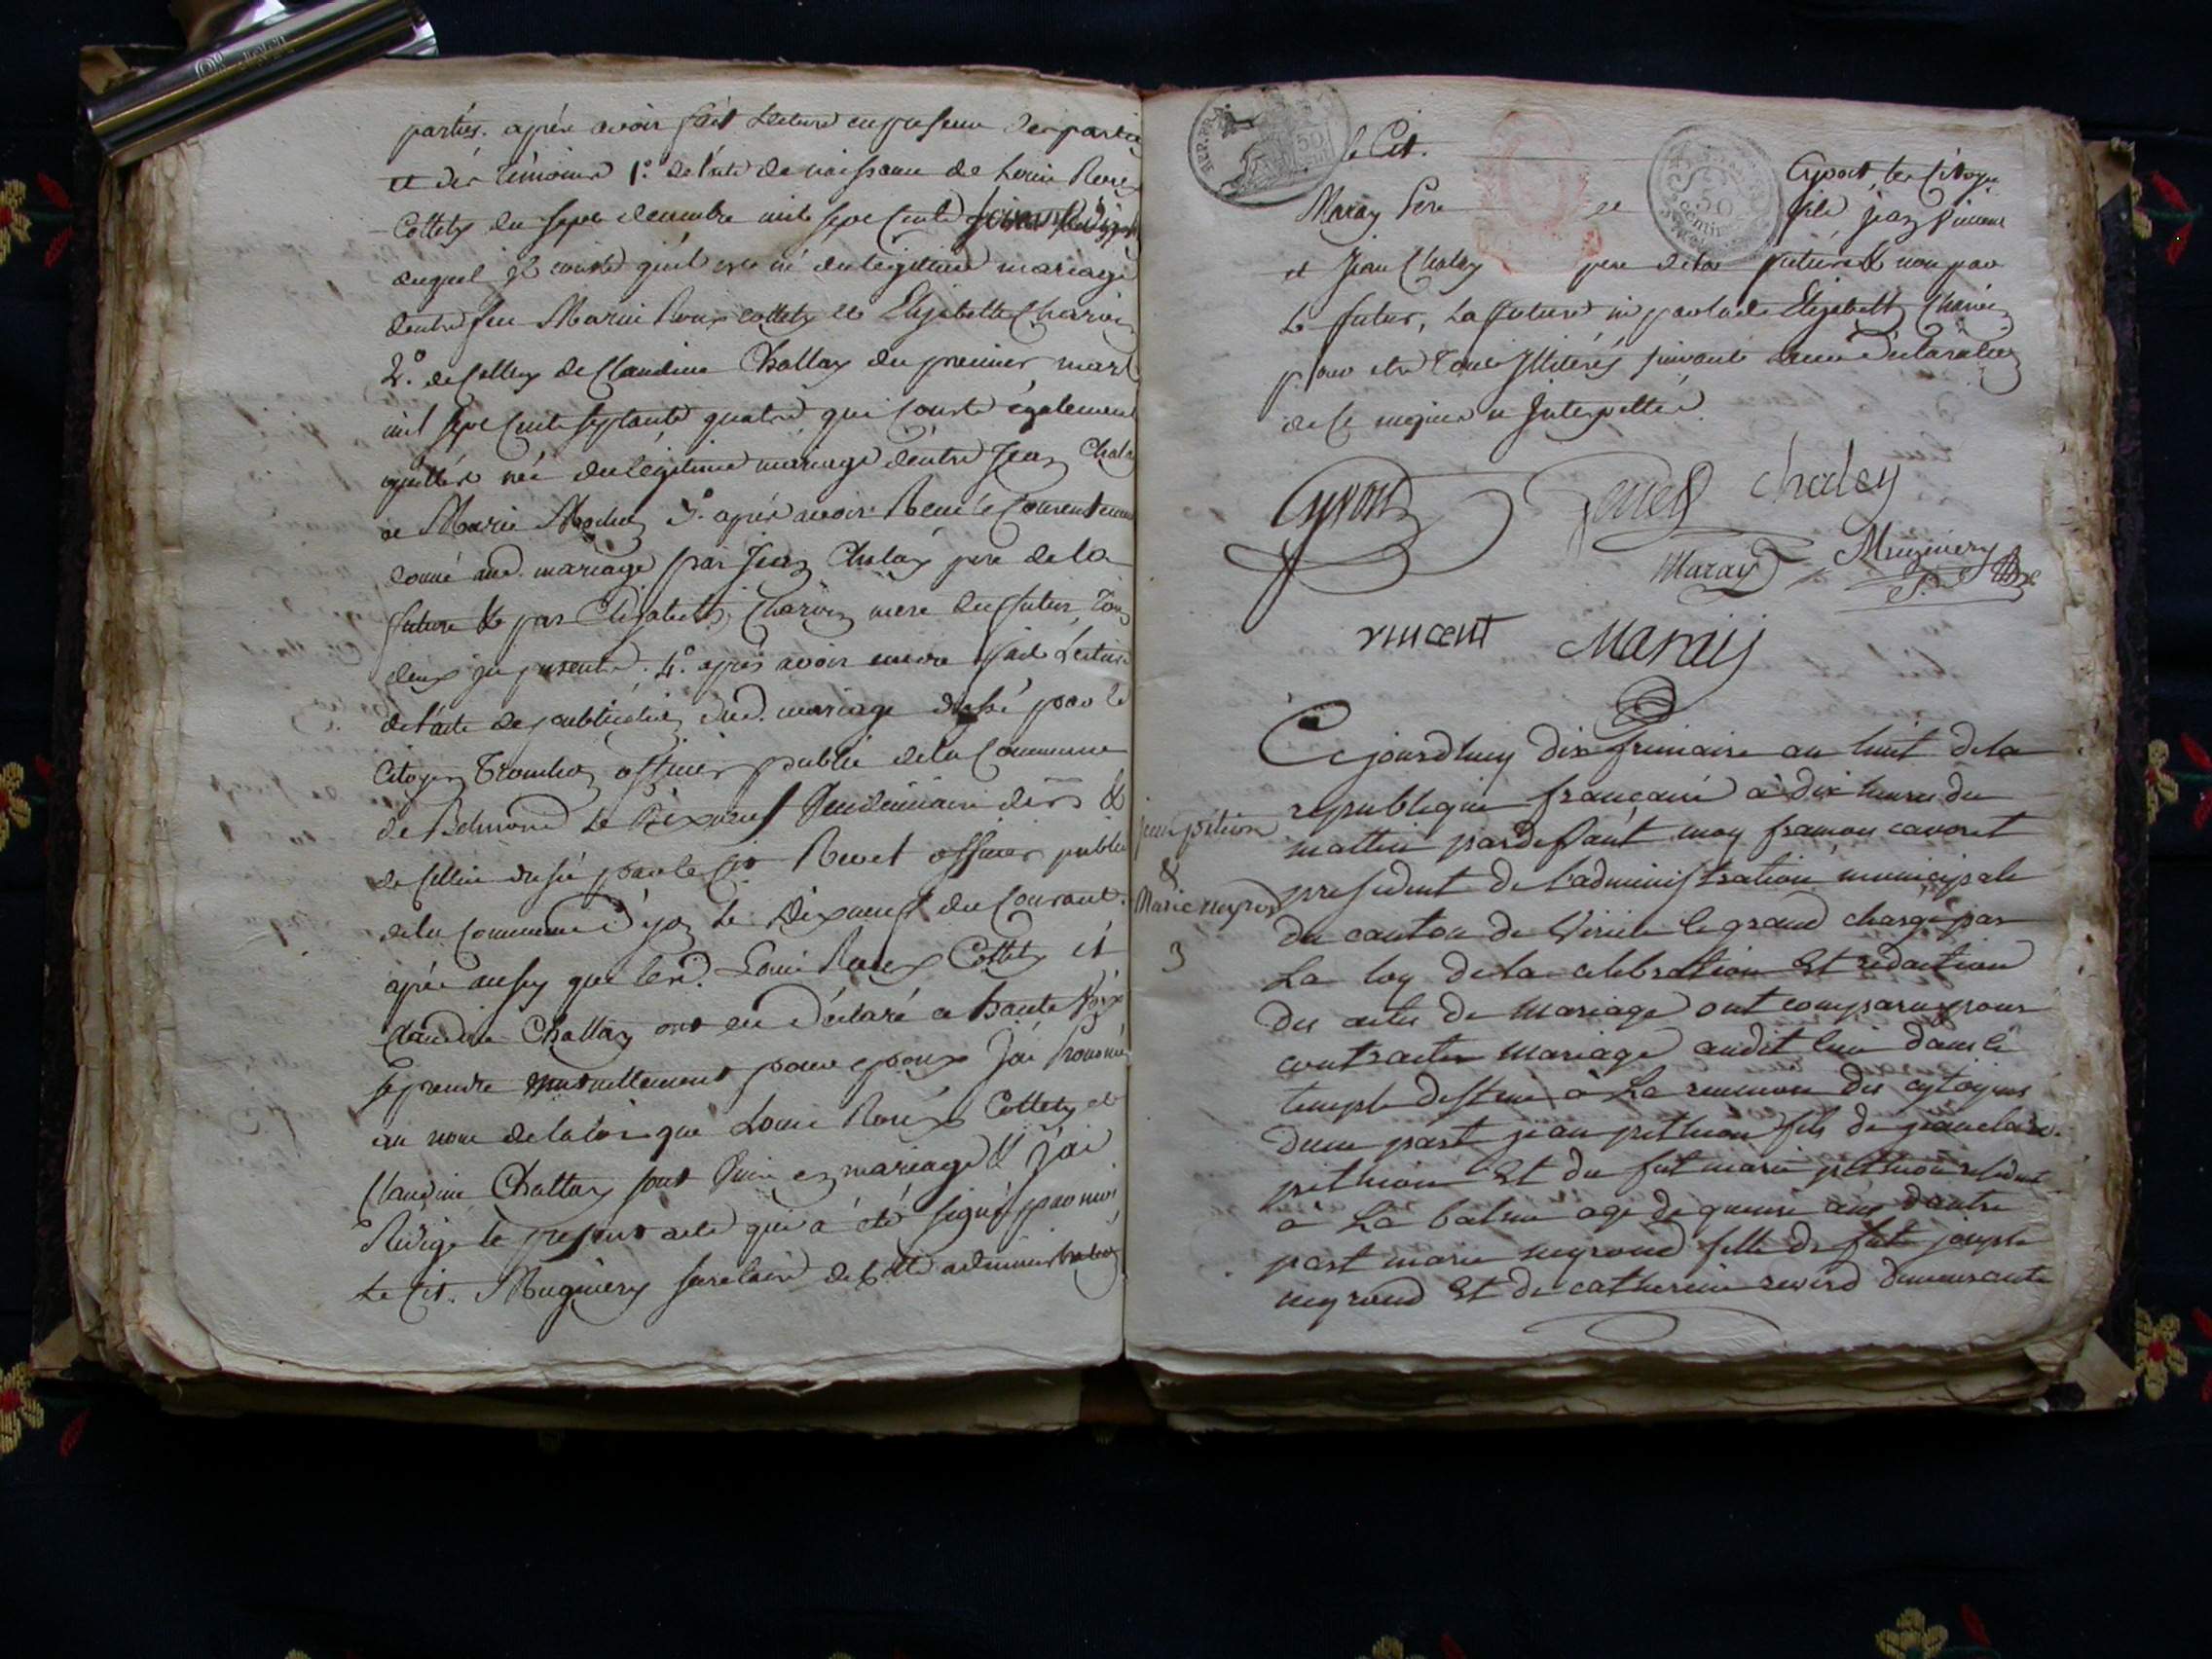 parties. après avoir fait Lecture en presence des parties
et des témoins 1.° de l'acte de naissance de Louis Roux
Collety du sept decembre mil sept cent
duquel il conste qu'il est né du legitime mariage
dentre feu Marin Roux collety et Elizabette Charvin
2.° de Celluy de Claudine Challay du premier mars
mil sept cent septante quatre, qui conste également
qu'elle est née du légitime mariage d'entre Jean Chala
et Marie Mochon 3.° après avoir Reçu le Consentement
donné aud. mariage par Jean Chalay pere de la
future & par Elisabeth Charvin mere du futur, Tous
deux ici presents. 4.° après avoir encore fait Lecture
de l'acte de publication dud. mariage dressé par le
Citoyen officier public de la Commune
de Belmond le Dixneuf Vendemiaire der &
de Celluy dressé par le Cit Revet officier public
de la Commune d'yon le Dixneuf du Courant.
après aussy que lesd. Louis Roux Collety et
Claudine Challay ont eu Déclaré a haute Voix
se prendre mutuellement pour epoux J'ai Prononcé
au nom de la loi que Louis Roux Collety et
Claudine Challay sont Unis en mariage & j'ai
Rédigé le present acte qui a été signé par moi
Le Cit. Muguiery secretaire de cette administration
REP. FRA.
50
le Cit.
50
centimes
Cyvoct, les Citoyens
Maray Pere et fils, jean Vincent
et Jean Chaley pere de la future & non par
Le futur, La future ni par lade Elizabeth Charvin
pour etre Tous Illiterés suivant Leur Déclaration
de Ce enquis et Interpellés
Cyvoct
chaley
Maray
Muguiery
vincent
Maray
Cejourdhuy dix frimaire an huit de la
republique française à dix heures du
mattin pardevant moy françois cavoret
president de l'administration municipale
du canton de Virieu le grand chargé par
La loy de la celebration Et redaction
des actes de Mariage ont comparu pour
contracter Mariage audit lieu dans le
temple destiné à La reunion des cytoyens
dune part jean pithion fils de jeanclaude
pithion Et de fut marie pithion résident
a La balme agé de quinze ans dautre
part marie neyroud fille de fut joseph
neyroud Et de catherine reverd demeurante
jean pition
&
Marie neyrod
3